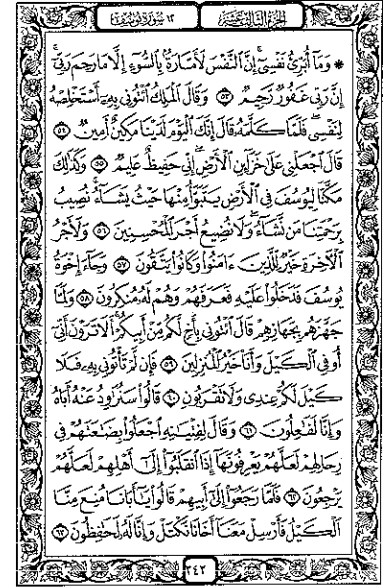 الجزء الثالث عشر ١٢ سورة يوسف
۞ وَمَآ أُبَرِّئُ نَفْسِىٓ ۚ إِنَّ ٱلنَّفْسَ لَأَمَّارَةٌۢ بِٱلسُّوٓءِ إِلَّا مَا رَحِمَ رَبِّىٓ ۚ
إِنَّ رَبِّى غَفُورٌ رَّحِيمٌ ٥٣ وَقَالَ ٱلْمَلِكُ ٱئْتُونِى بِهِۦٓ أَسْتَخْلِصْهُ
لِنَفْسِى ۖ فَلَمَّا كَلَّمَهُۥ قَالَ إِنَّكَ ٱلْيَوْمَ لَدَيْنَا مَكِينٌ أَمِينٌ ٥٤
قَالَ ٱجْعَلْنِى عَلَىٰ خَزَآئِنِ ٱلْأَرْضِ ۖ إِنِّى حَفِيظٌ عَلِيمٌ ٥٥ وَكَذَٰلِكَ
مَكَّنَّا لِيُوسُفَ فِى ٱلْأَرْضِ يَتَبَوَّأُ مِنْهَا حَيْثُ يَشَآءُ ۚ نُصِيبُ
بِرَحْمَتِنَا مَن نَّشَآءُ ۖ وَلَا نُضِيعُ أَجْرَ ٱلْمُحْسِنِينَ ٥٦ وَلَأَجْرُ
ٱلْآخِرَةِ خَيْرٌ لِّلَّذِينَ ءَامَنُوا۟ وَكَانُوا۟ يَتَّقُونَ ٥٧ وَجَآءَ إِخْوَةُ
يُوسُفَ فَدَخَلُوا۟ عَلَيْهِ فَعَرَفَهُمْ وَهُمْ لَهُۥ مُنكِرُونَ ٥٨ وَلَمَّا
جَهَّزَهُم بِجَهَازِهِمْ قَالَ ٱئْتُونِى بِأَخٍ لَّكُم مِّنْ أَبِيكُمْ ۚ أَلَا تَرَوْنَ أَنِّىٓ
أُوفِى ٱلْكَيْلَ وَأَنَا۠ خَيْرُ ٱلْمُنزِلِينَ ٥٩ فَإِن لَّمْ تَأْتُونِى بِهِۦ فَلَا
كَيْلَ لَكُمْ عِندِى وَلَا تَقْرَبُونِ ٦٠ قَالُوا۟ سَنُرَٰوِدُ عَنْهُ أَبَاهُ
وَإِنَّا لَفَٰعِلُونَ ٦١ وَقَالَ لِفِتْيَٰنِهِ ٱجْعَلُوا۟ بِضَٰعَتَهُمْ فِى
رِحَالِهِمْ لَعَلَّهُمْ يَعْرِفُونَهَآ إِذَا ٱنقَلَبُوٓا۟ إِلَىٰٓ أَهْلِهِمْ لَعَلَّهُمْ
يَرْجِعُونَ ٦٢ فَلَمَّا رَجَعُوٓا۟ إِلَىٰٓ أَبِيهِمْ قَالُوا۟ يَٰٓأَبَانَا مُنِعَ مِنَّا
ٱلْكَيْلُ فَأَرْسِلْ مَعَنَآ أَخَانَا نَكْتَلْ وَإِنَّا لَهُۥ لَحَٰفِظُونَ ٦٣
٢٤٢